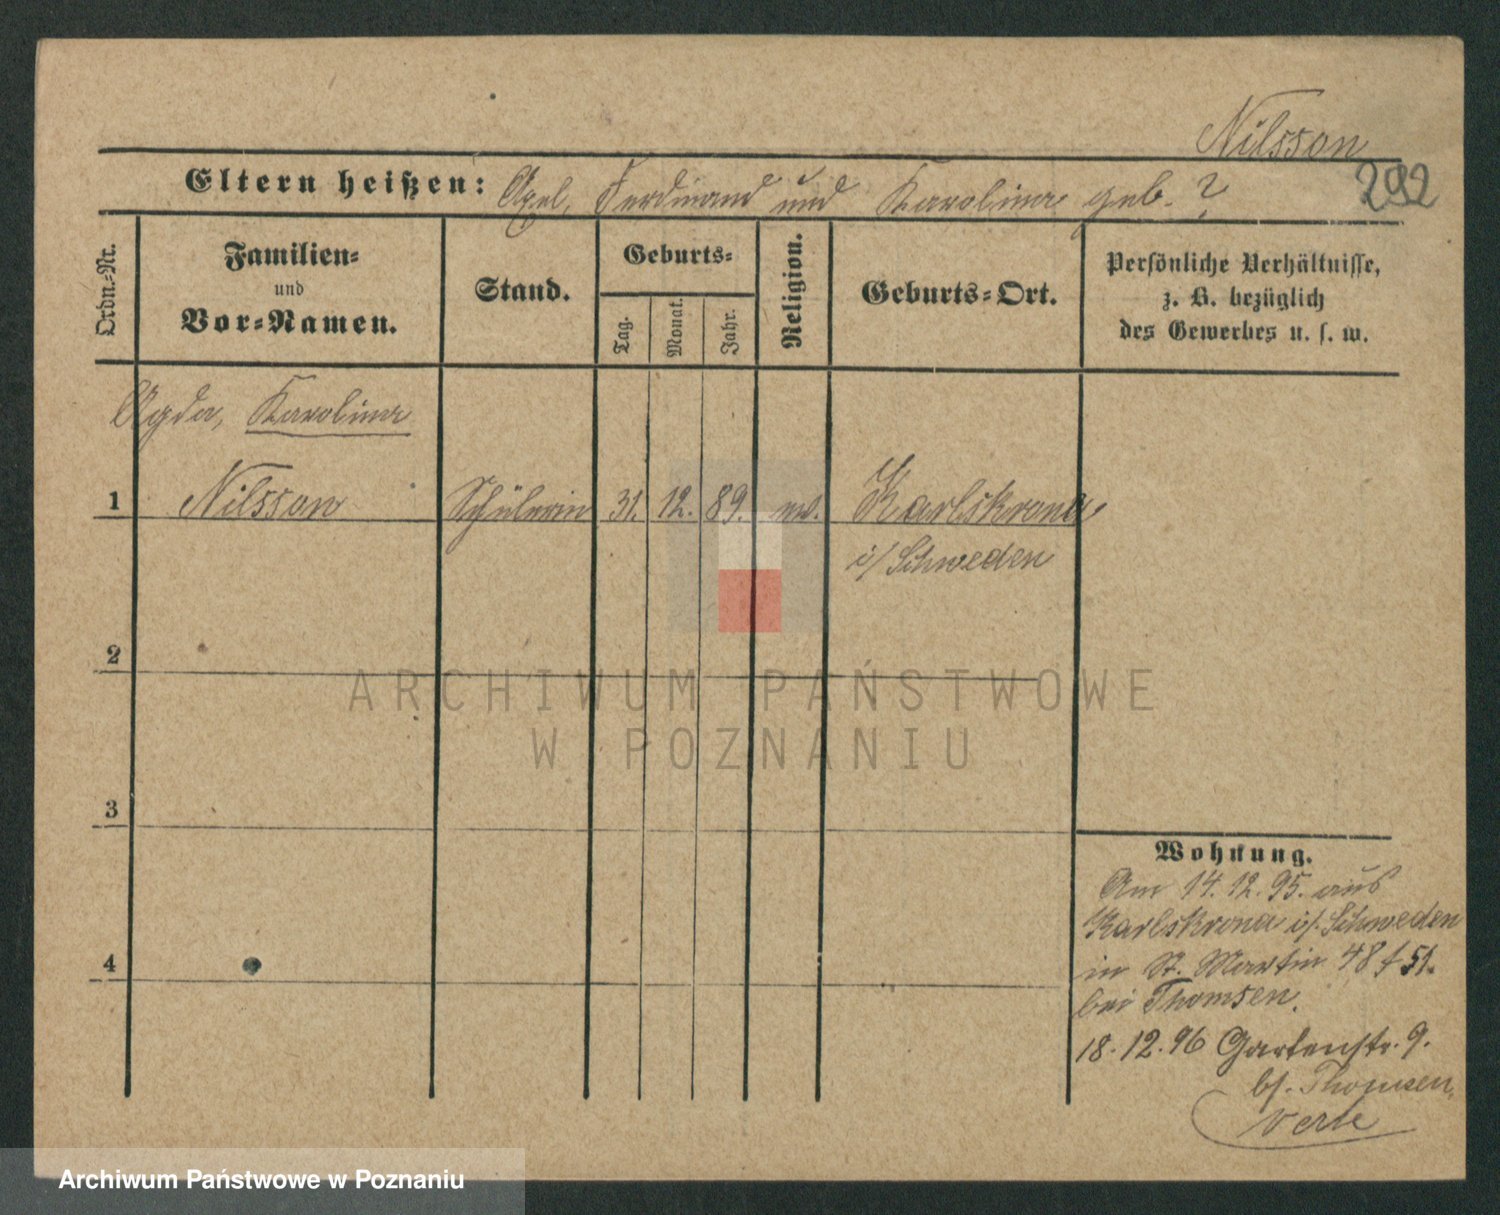 Nilsson
Eltern heißen: Axel, Ferdinand und Karolina geb. ?
292
Ordn.-Nr.
Familien-
und
Vor-Namen.
Stand.
Geburts-
Tag.
Monat.
Jahr.
Religion.
Geburts-Ort.
Persönliche Verhältnisse,
z. B. bezüglich
des Gewerbes u. s. w.
Agda, Karolina
1 Nilsson Schülerin 31. 12. 89. ev. Karlskrona
i/ Schweden
2
3
4
Wohnung.
Am 14.12.95. aus
Karlskrona i/. Schweden
in St. Martin 48 / 51.
bei Thomsen.
18.12.96 Gartenstr. 9.
b/. Thomsen.
ARCHIWUM PAŃSTWOWE
W POZNANIU
Archiwum Państwowe w Poznaniu